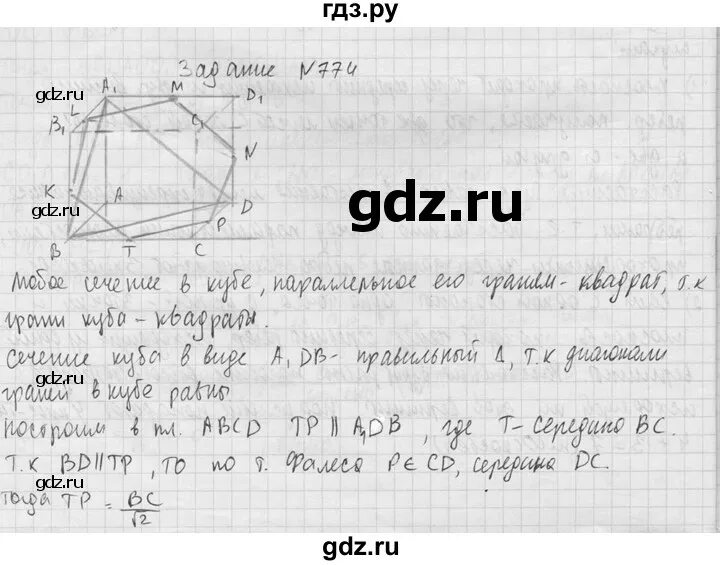 гдз.ру
Задание N774
A₁ M D₁
gdz.ru gdz.ru
L
B₁ C₁
N
K A D
gdz.ru gdz.ru
P
B T C
Любое сечение в кубе, параллельное его граням - квадрат, т.к
грани куба - квадраты.
Сечение куба в виде A₁DB - правильный Δ, т.к диагонали
gdz.ru gdz.ru
граней в кубе равны
Построим в пл. ABCD TP ∥ A₁DB, где T - середина BC.
Т.к BD∥TP, то по т. Фалеса P∈CD, середина DC.
Тогда TP = BC/√2
gdz.ru gdz.ru
gdz.ru